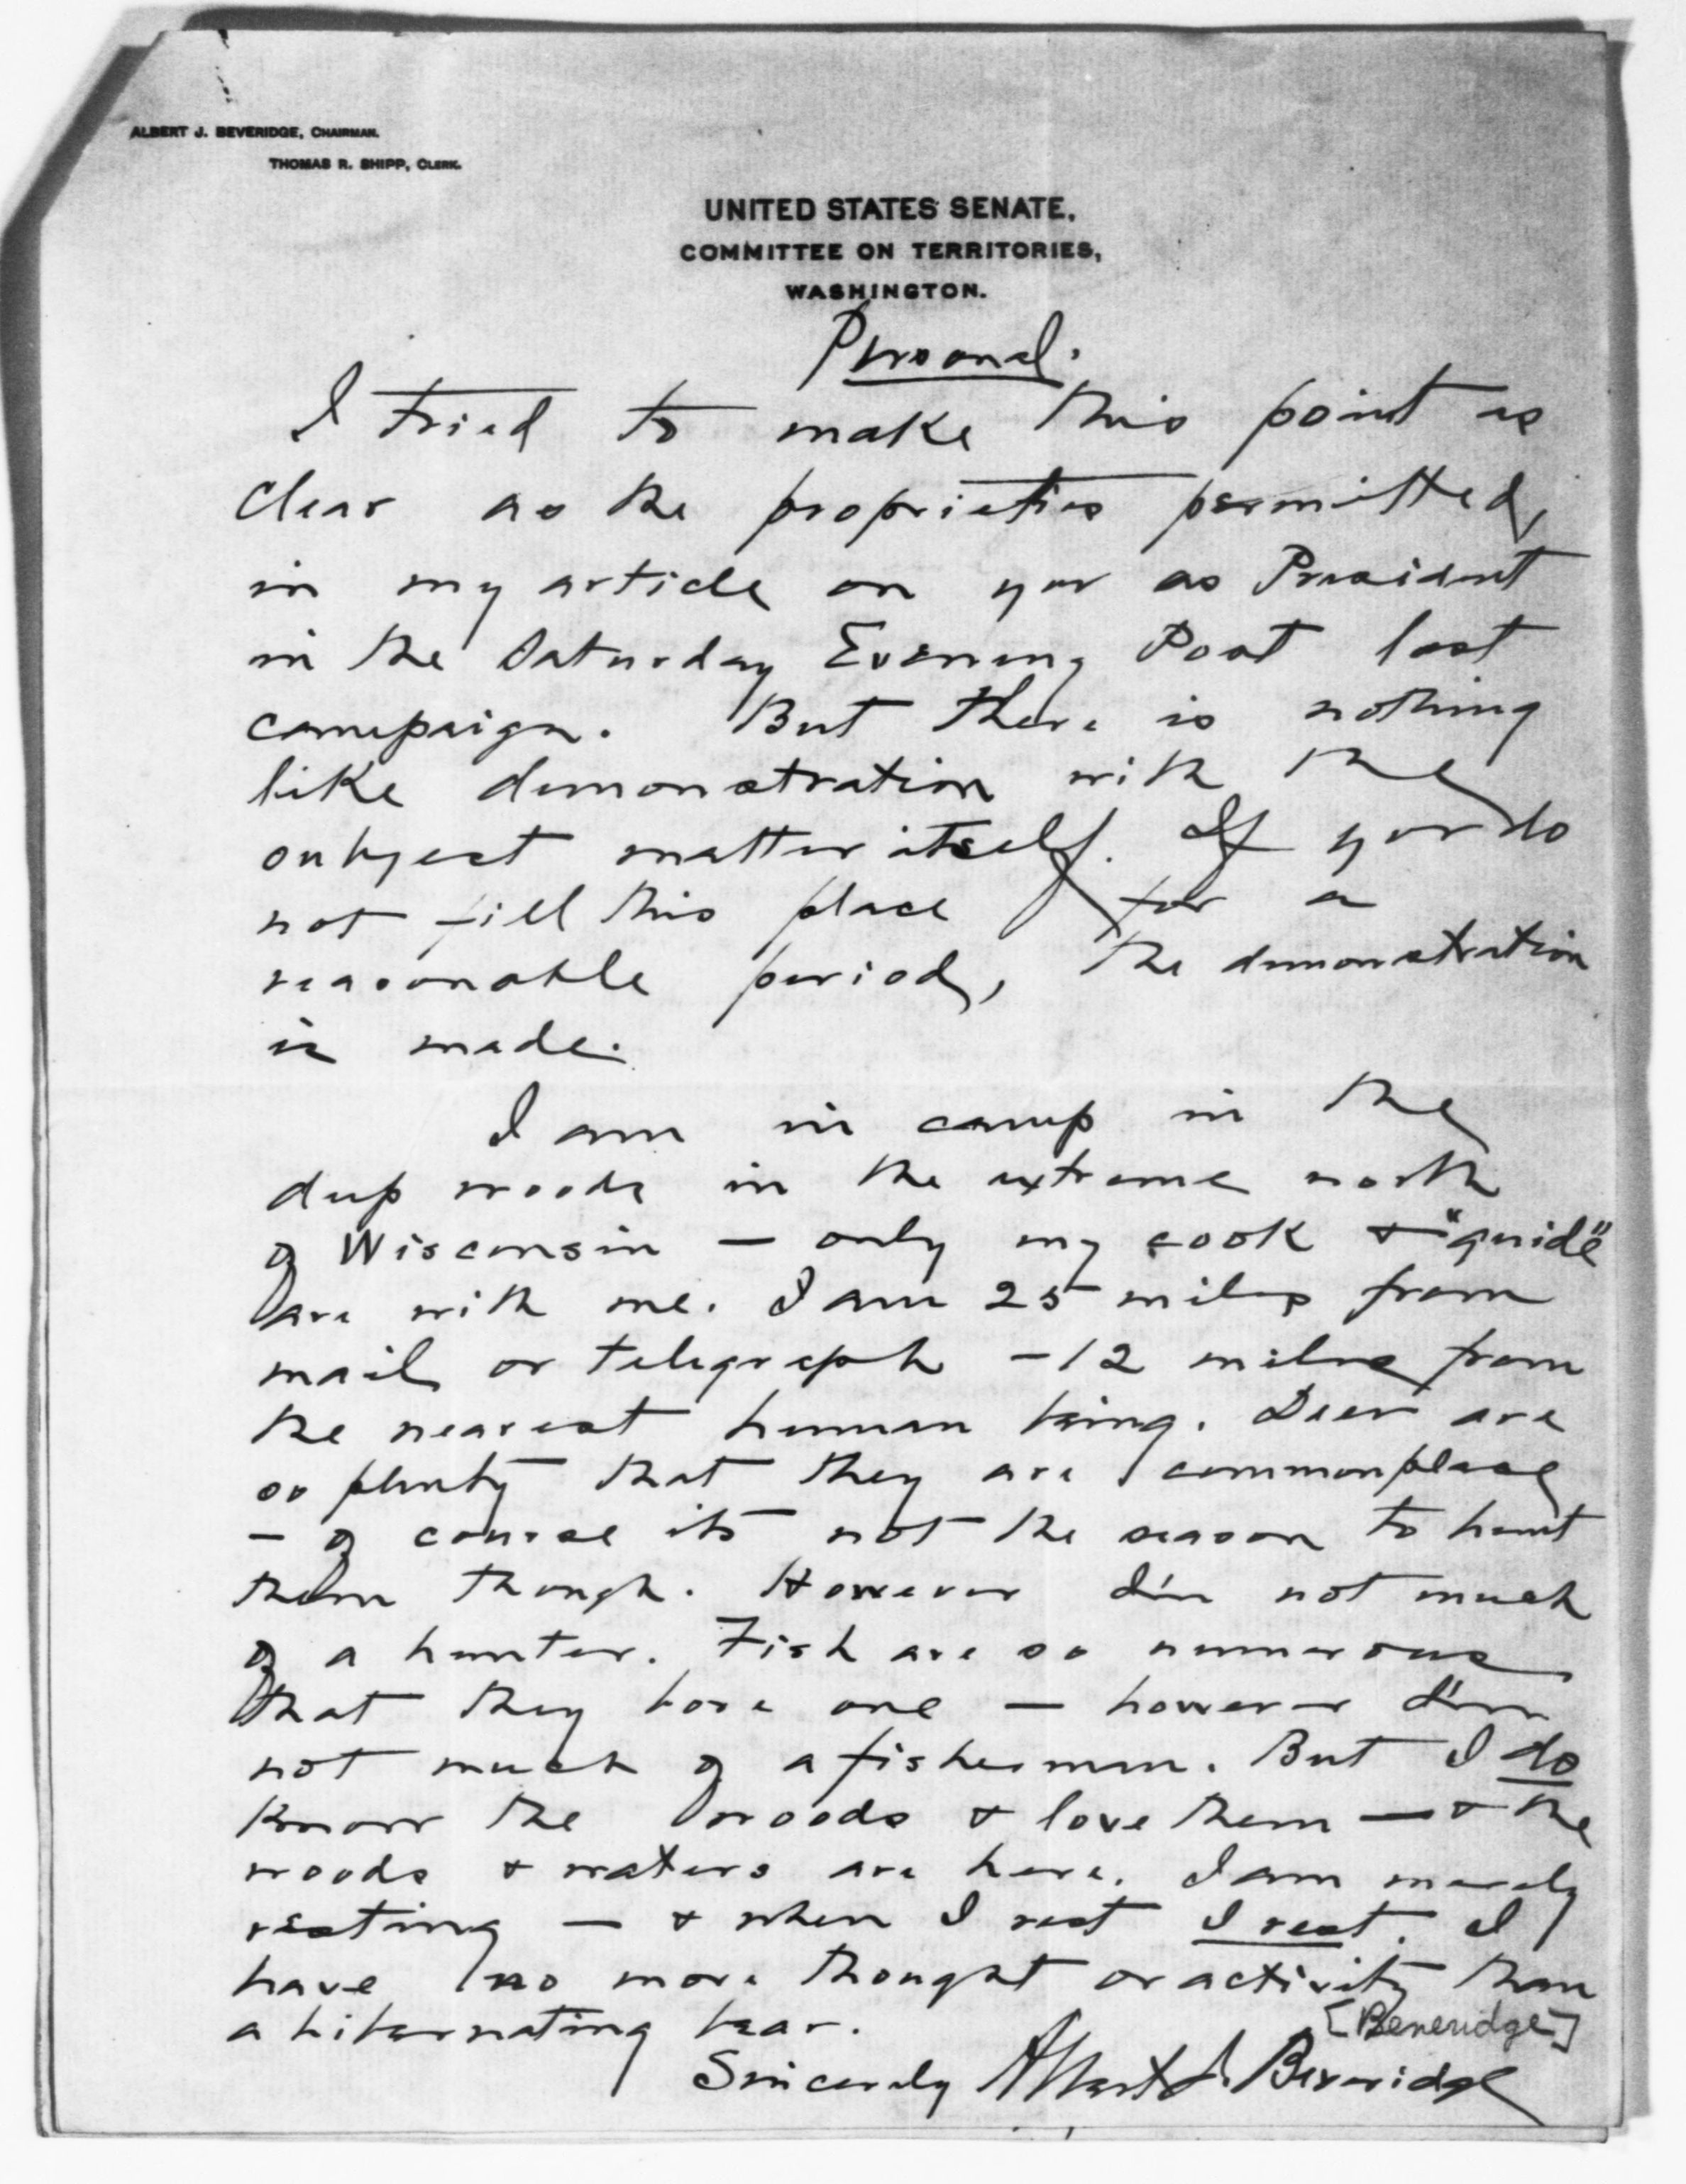 ALBERT J. BEVERIDGE, CHAIRMAN.
THOMAS R. SHIPP, CLERK.
UNITED STATES SENATE,
COMMITTEE ON TERRITORIES,
WASHINGTON.
Personal.
I tried to make this point as
clear as the proprieties permitted,
in my article on you as President
in the Saturday Evening Post last
campaign. But there is nothing
like demonstration with the
subject matter itself. If you do
not fill this place for a
reasonable period, the demonstration
is made.
I am in camp in the
deep woods in the extreme north
of Wisconsin — only my cook & "guide"
are with me. I am 25 miles from
mail or telegraph - 12 miles from
the nearest human being. Deer are
so plenty that they are commonplace
— of course its not the season to hunt
them though. However I'm not much
of a hunter. Fish are so numerous
that they bore one — however I'm
not much of a fisherman. But I do
know the woods & love them — & the
woods & waters are here. I am merely
resting — & when I rest I rest. I
have no more thought or activity than
a hibernating bear.
[Beveridge]
Sincerely Albert J. Beveridge